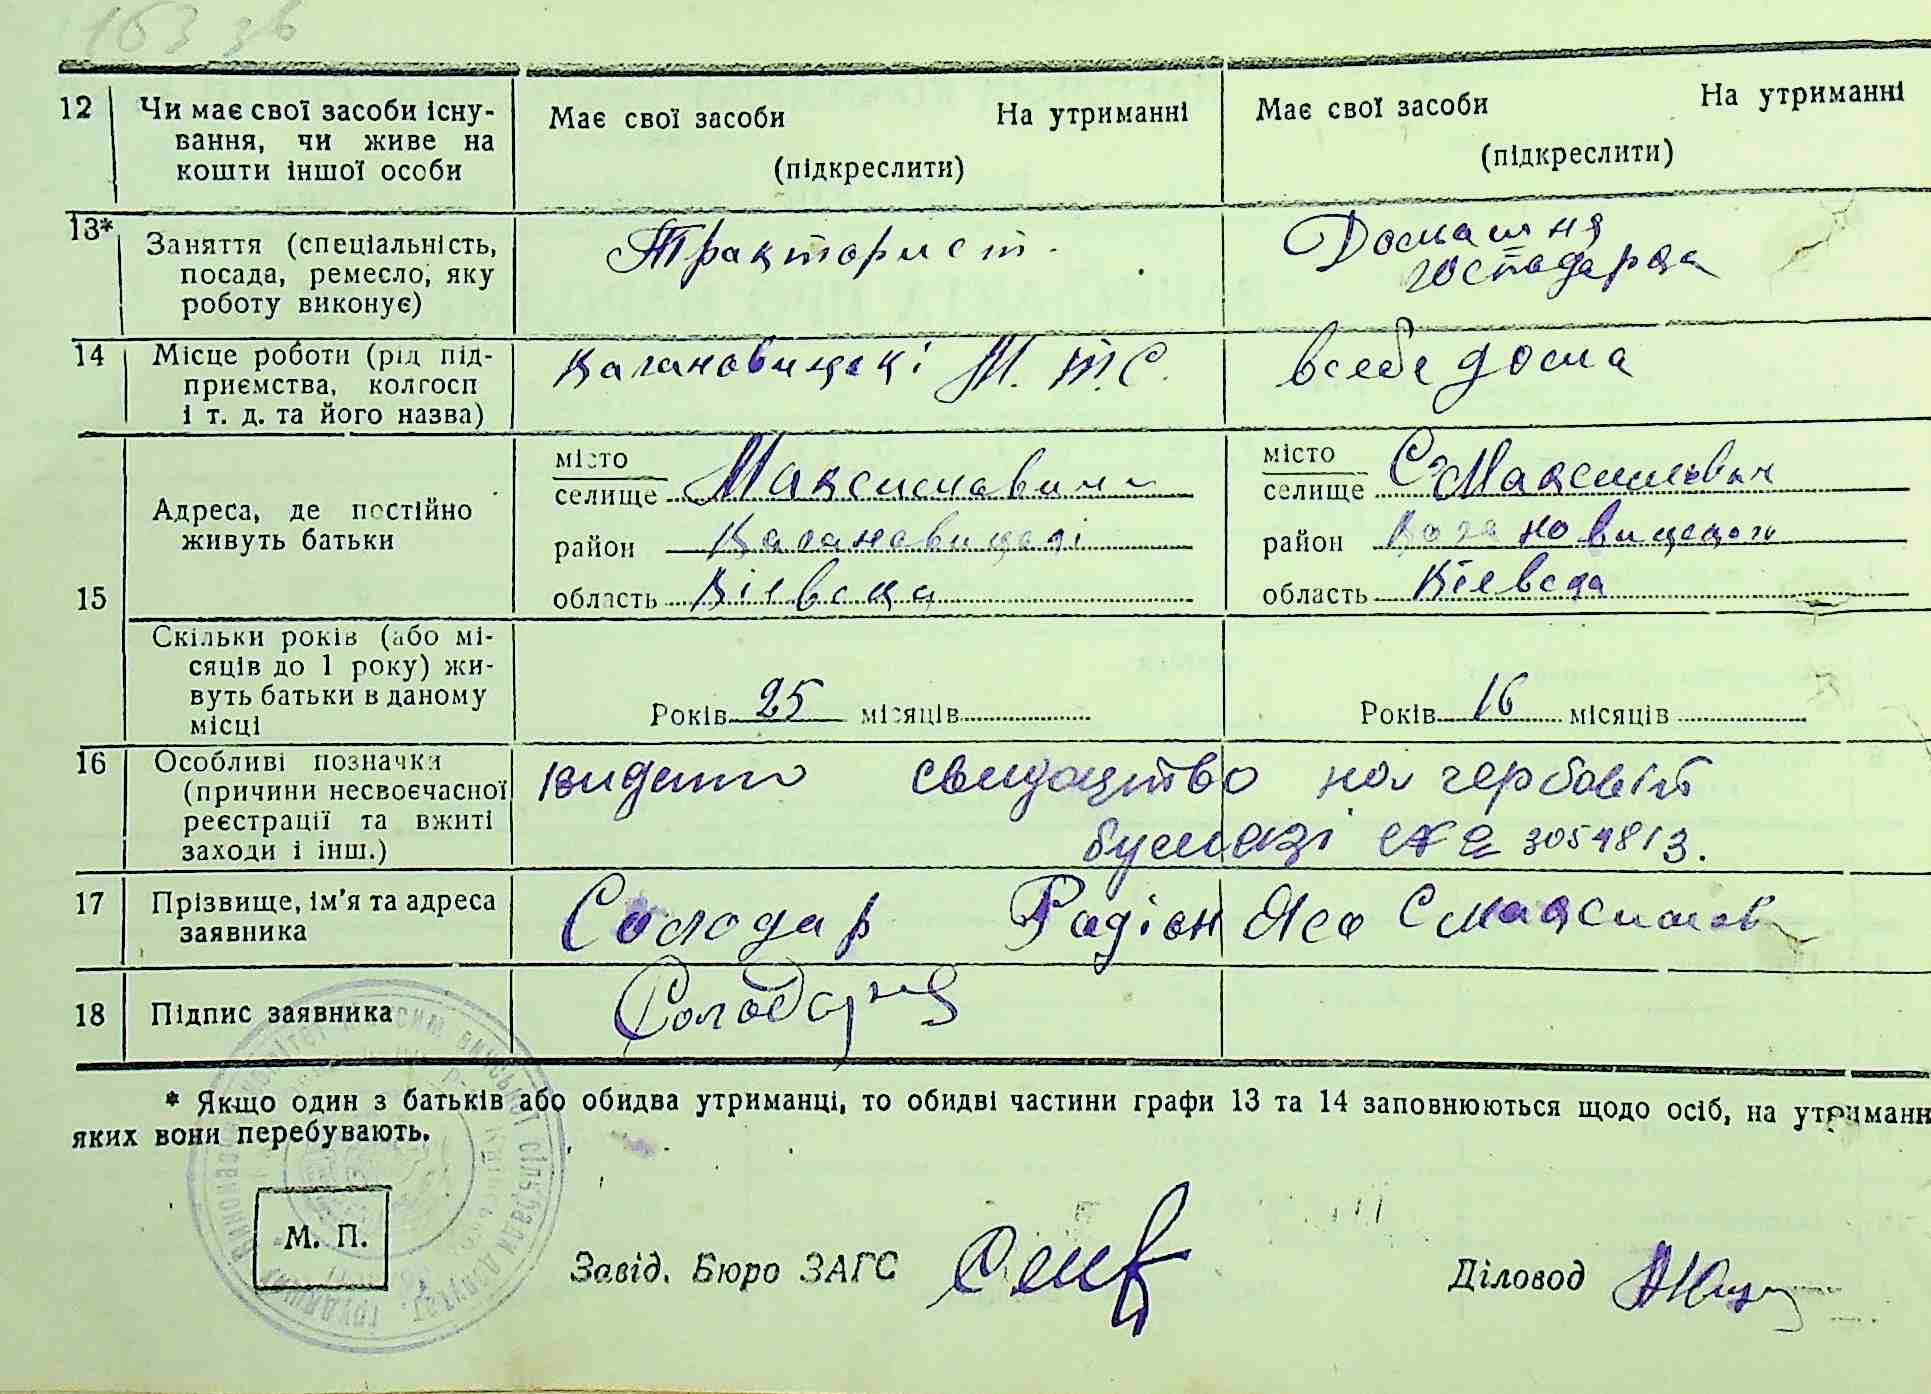 163 зв
12 Чи має свої засоби існу-
вання, чи живе на
кошти іншої особи
Має свої засоби На утриманні
(підкреслити)
Має свої засоби На утриманні
(підкреслити)
13* Заняття (спеціальність,
посада, ремесло, яку
роботу виконує)
Тракторист
Домашня
господарка
14 Місце роботи (рід під-
приємства, колгосп
і т. д. та його назва)
Кагановицькі М.Т.С.
в себе дома
15
Адреса, де постійно
живуть батьки
місто
селище Максимовичи
район Кагановицькі
область Кіевска
місто
селище С Максимович
район Кагановицької
область Кіевска
Скільки років (або мі-
сяців до 1 року) жи-
вуть батьки в даному
місці
Років 25 місяців
Років 16 місяців
16 Особливі позначки
(причини несвоєчасної
реєстрації та вжиті
заходи і інш.)
видано свидоцтво на гербовій
бумазі № 3054813.
17 Прізвище, ім'я та адреса
заявника
Солодар Радіон С Максимов
18 Підпис заявника
* Якщо один з батьків або обидва утриманці, то обидві частини графи 13 та 14 заповнюються щодо осіб, на утриманн
яких вони перебувають.
М. П.
Завід. Бюро ЗАГС
Діловод